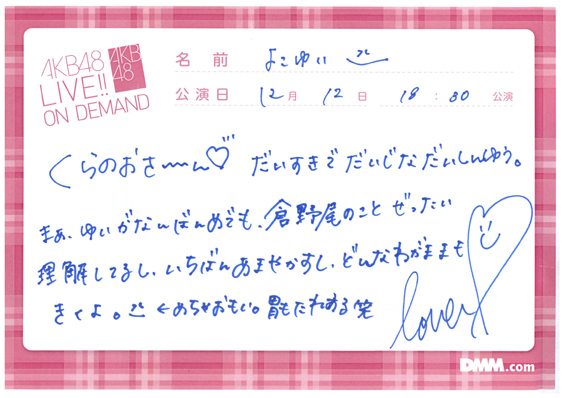 AKB48
LIVE!!
ON DEMAND
AKB
48
名前 よこゆい
公演日 12月 12日 18:30 公演
くらのおさーーん♡ だいすきでだいじなだいしんゆう。
まぁ、ゆいがなんばんめでも、倉野尾のこと ぜったい
理解してるし、いちばんあまやかすし、どんなわがままも
きくよ。 ←めちゃおもい。胃もたれある笑
lover
DMM.com